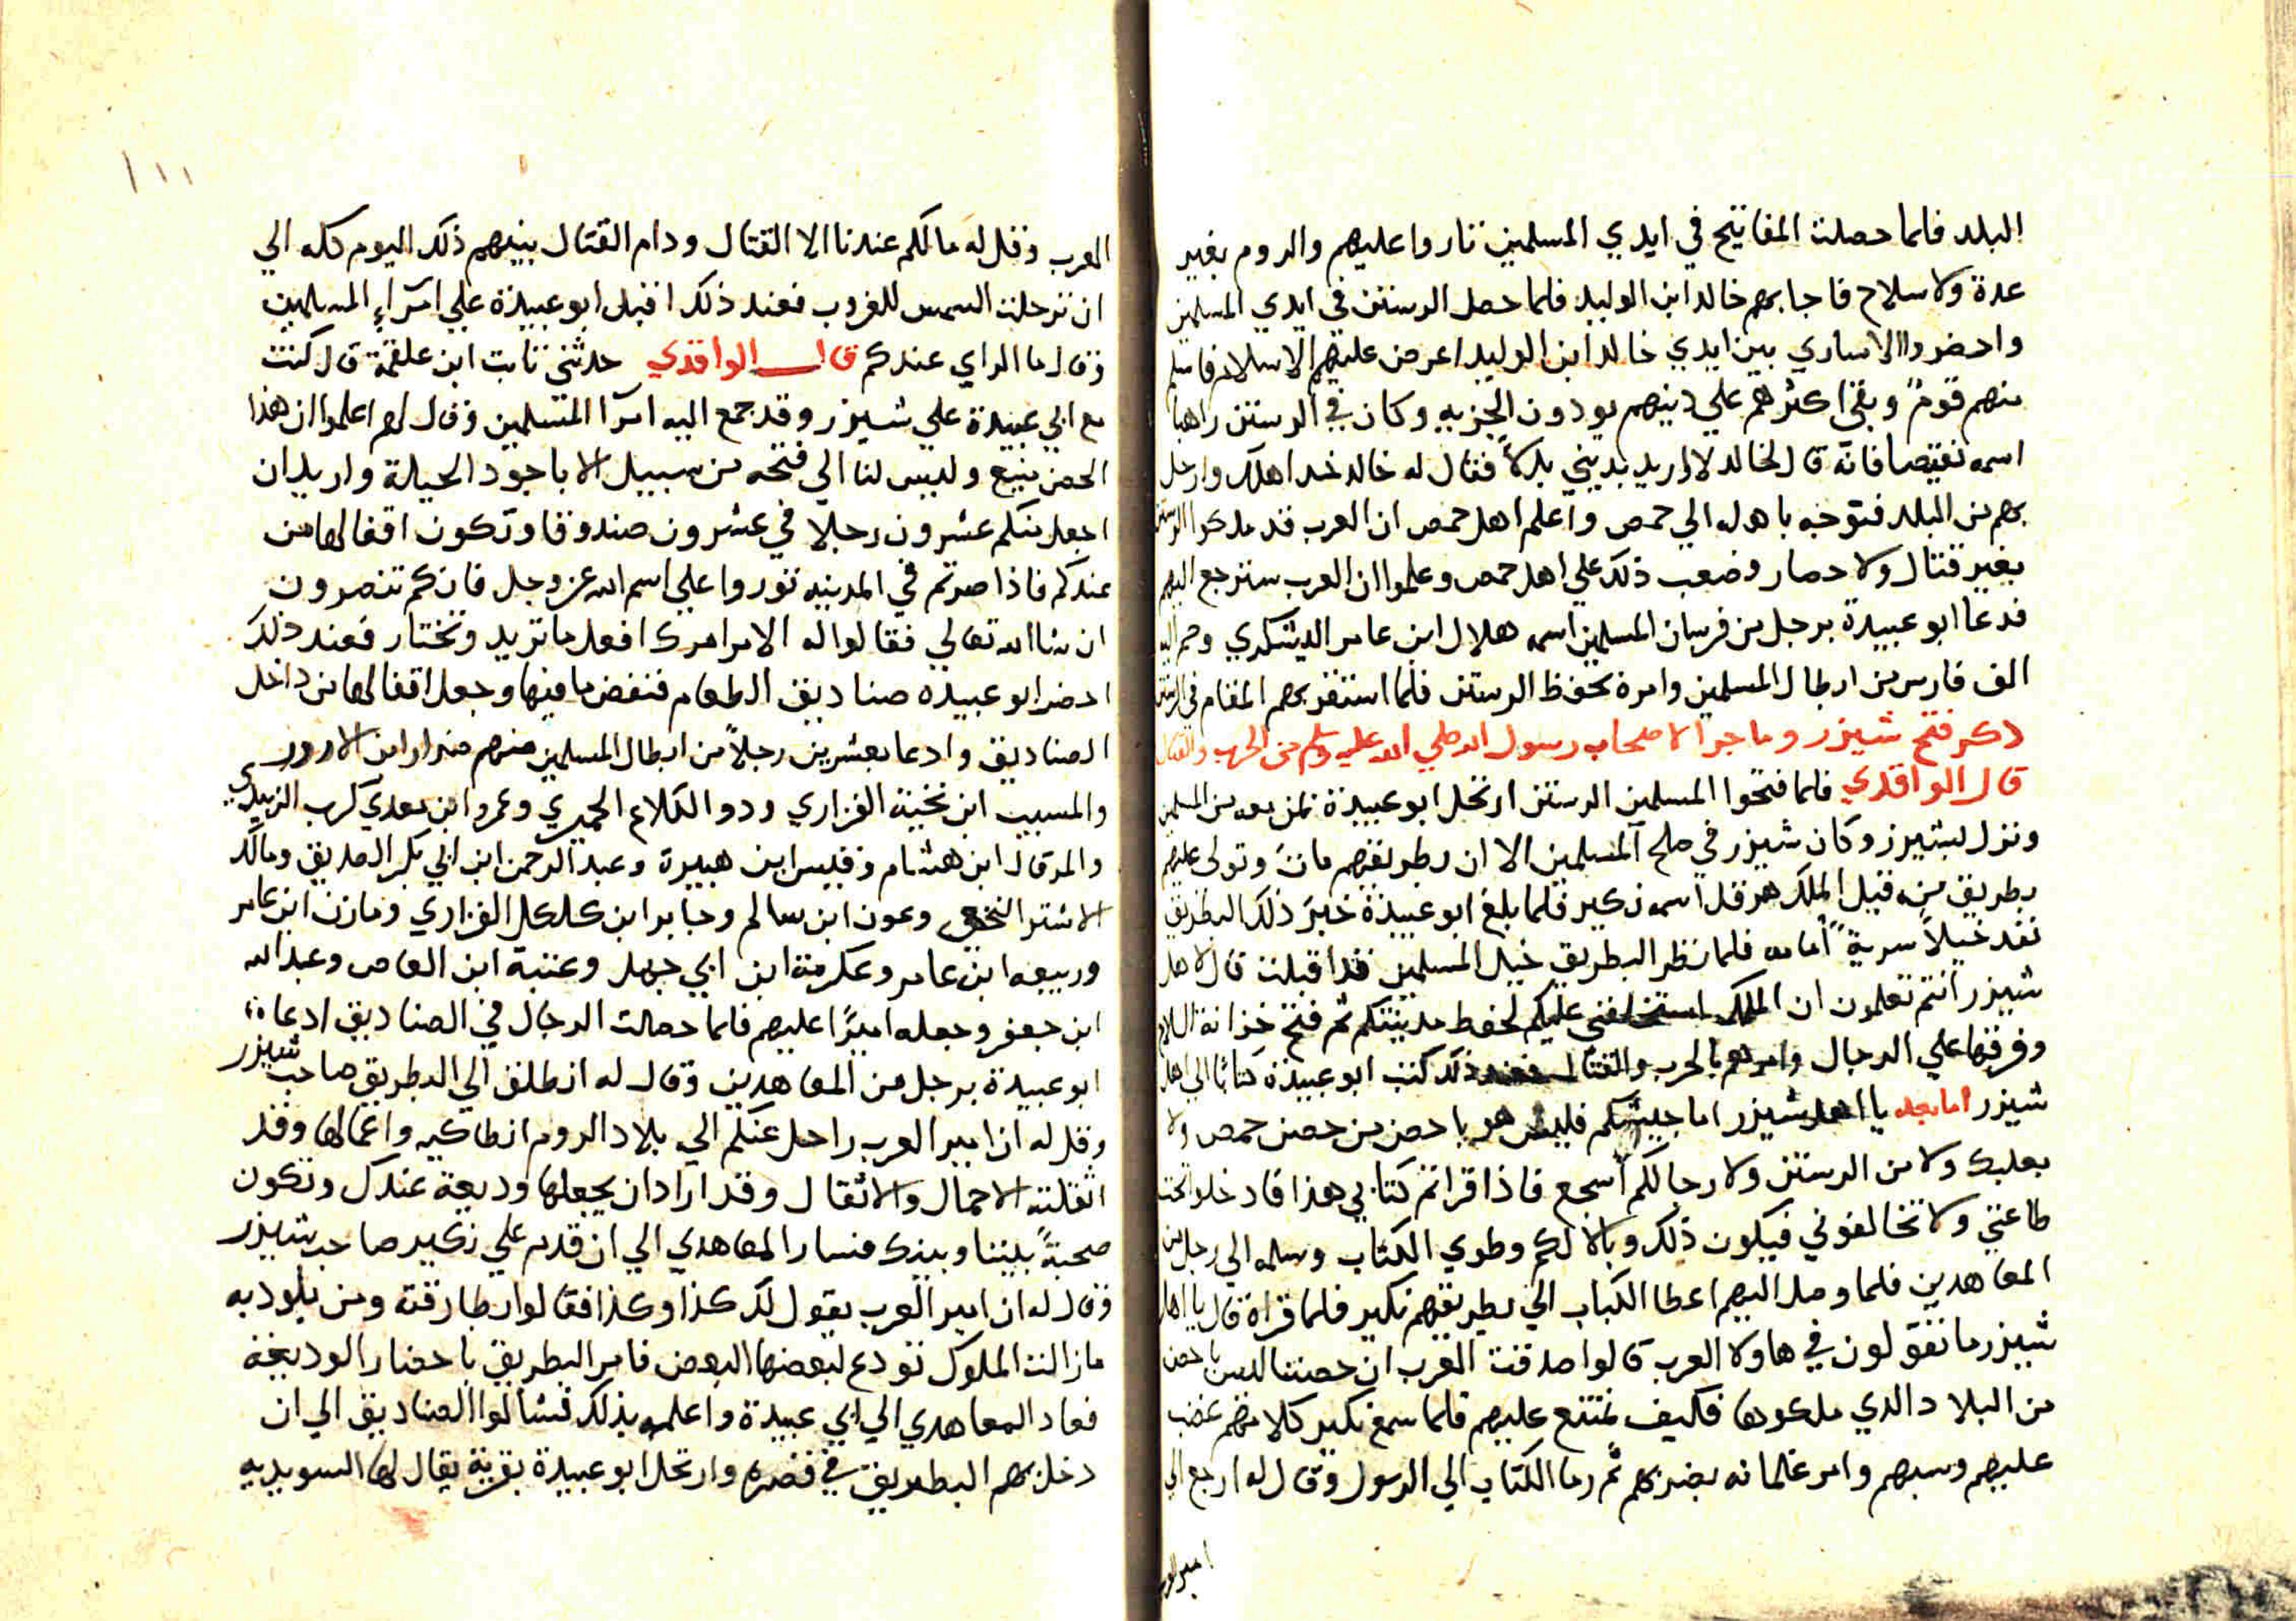 البلد فلما حصلت المفاتيح في ايدي المسلمين ثاروا عليهم والروم بغير
عدة ولا سلاح فاجابهم خالد ابن الوليد فلما حصل الرستن في ايدي المسلمين
واحضروا الاساري بين ايدي خالد ابن الوليد اعرض عليهم الاسلام فاسلم
منهم قومٌ وبقي اكثرهم علي دينهم يودون الجزيه وكان في الرستن راهبا
اسمه قال لخالد لا اريد بديني بدلاً فقال له خالد خد اهلك وارحل
بهم من البلد فتوجه باهله الي حمص واعلم اهل حمص ان العرب قد ملكوا الرستن
بغير قتال ولا حصار وصعب ذلك علي اهل حمص وعلموا ان العرب سترجع اليهم
فدعا ابو عبيدة برجل من فرسان المسلمين اسمه هلال ابن عامر اليشكري وضم اليه
الف فارس من ابطال المسلمين وامره بحفظ الرستن فلما استقر بهم المقام في الرستن
ذكر فتح شيزر وما جرا لاصحاب رسول الله صلي الله عليه وسلم من الحرب والقتال
قال الواقدي فلما فتحوا المسلمين الرستن ارتحل ابو عبيدة بمن معه من المسلمين
ونزل بشيزر وكان شيزر في صلح المسلمين الا ان بطريقهم مات وتولي عليهم
بطريق من قبل الملك هرقل اسمه نكير فلما بلغ ابو عبيدة خبر ذلك البطريق
نفد خيلاً سريةً امامه فلما نظر البطريق خيل المسلمين قد اقبلت قال لاهل
شيزر انتم تعلمون ان الملك استخلفني عليكم لحفظ مدينتكم ثم فتح خزانة السلاح
وفرقها علي الرجال وامرهم بالحرب والقتال فعند ذلك كتب ابو عبيدة كتابًا الي اهل
شيزر اما بعد يا اهل شيزر اما حصنكم فليس هو باحصن من حصن حمص ولا
بعلبك ولا من الرستن ولا رجالكم اشجع فاذا قراتم كتابي هذا فادخلوا تحت
طاعتي ولا تخالفوني فيكون ذلك وبالا لكم وطوي الكتاب وسلمه الي رجل من
المعاهدين فلما وصل اليهم اعطا الكتاب الي بطريقهم نكير فلما قراه قال يا اهل
شيزر ما تقولون في هاولا العرب قالوا صدقت العرب ان حصننا ليس باحصن
من البلاد الدي ملكوها فكيف نمتنع عليهم فلما سمع نكير كلامهم غضب
عليهم وسبهم وامر غلمانه بضربهم ثم رما الكتاب الي الرسول وقال له ارجع الي
امير العرب
١١١
العرب وقل له ما لكم عندنا الا القتال ودام القتال بينهم ذلك اليوم كله الي
ان ترحلت الشمس للغروب فعند ذلك اقبل ابو عبيدة علي امرآء المسلمين
وقال ما الراي عندكم قال الواقدي حدثني ثابت ابن علقمة قال كنت
مع ابي عبيدة علي شيزر وقد جمع اليه امرا المسلمين وقال لهم اعلموا ان هذا
الحصن منيع وليس لنا الي فتحه من سبيل الا باجود الحيلة واريد ان
اجعل منكم عشرون رجلا في عشرون صندوقا وتكون اقفالها من
عندكم فاذا صرتم في المدينه ثوروا علي اسم الله عز وجل فانكم تنصرون
ان شا الله تعالي فقالوا له الامر امرك افعل ما تريد وتختار فعند ذلك
احضر ابو عبيده صناديق الطعام فنفض ما فيها وجعل اقفالها من داخل
الصناديق وادعا بعشرين رجلاً من ابطال المسلمين منهم ضرار ابن الازور
والمسيب ابن نخبة الفزاري ودو الكلاع الحميري وعمرو ابن معدي كرب الزبيدي
والمرقال ابن هشام وقيس ابن هبيرة وعبد الرحمن ابن ابي بكر الصديق ومالك
الاشتر النخعي وعون ابن سالم وجابر ابن كلكل الفزاري ومازن ابن عامر
وربيعه ابن عامر وعكرمة ابن ابي جهل وعتبة ابن العاص وعبد الله
ابن جعفر وجعله اميرًا عليهم فلما حصلت الرجال في الصناديق ادعا
ابو عبيدة برجل من المعاهدين وقال له انطلق الي البطريق صاحب شيزر
وقل له ان امير العرب راحل عنكم الي بلاد الروم انطاكيه واعمالها وقد
اثقلته الاحمال والاثقال وقد اراد ان يجعلها وديعة عندك وتكون
صحبةً بيننا وبينك فسار المعاهدي الي ان قدم علي نكير صاحب شيزر
وقال له ان امير العرب يقول لك كذا وكذا فقالوا بطارقته ومن يلود به
ما زالت الملوك تودع لبعضها البعض فامر البطريق باحضار الوديعة
فعاد المعاهدي الي ابي عبيدة واعلمه بذلك فشالوا الصناديق الي ان
دخل بهم البطريق في قصره وارتحل ابو عبيدة بقرية يقال لها السويديه